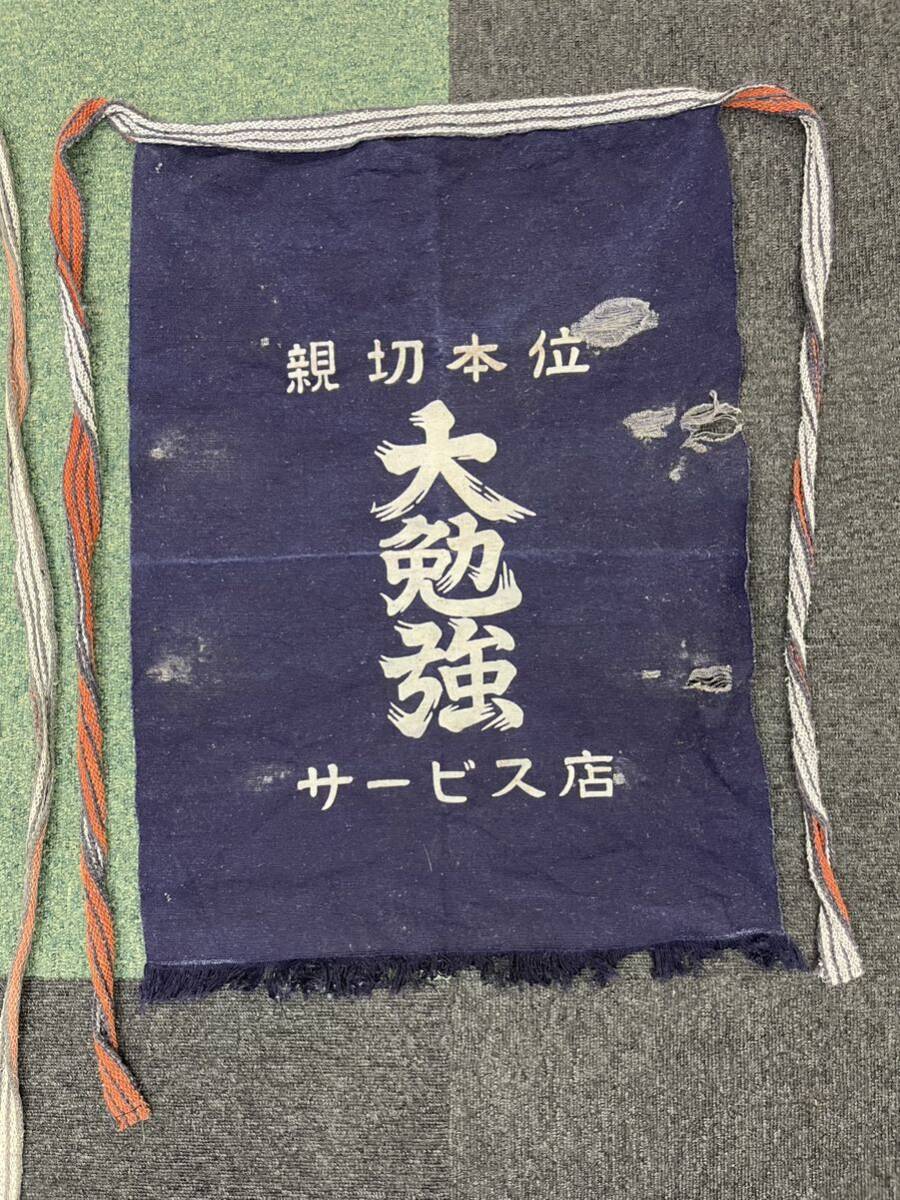 親切本位
大勉強
サービス店